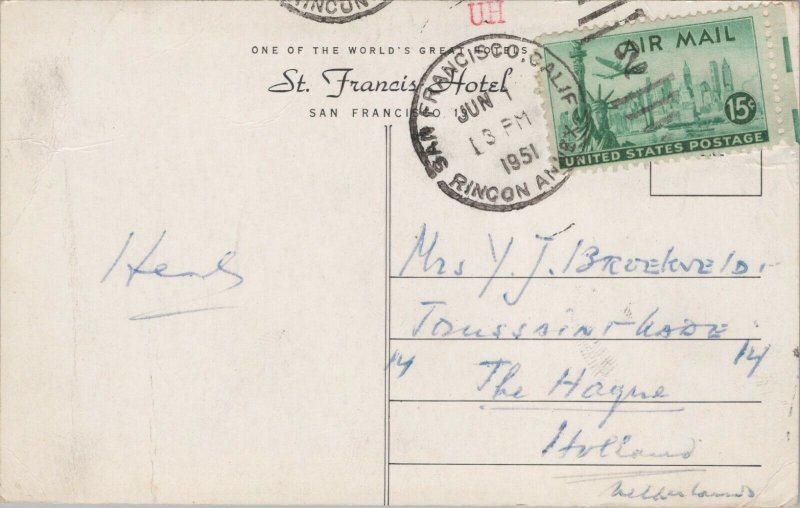 RINCON
UH
ONE OF THE WORLD'S GREAT HOTELS
St. Francis Hotel
SAN FRANCISCO, 
SAN FRANCISCO, CALIF.
JUN 1
13 PM
1951
RINCON ANNEX
AIR MAIL
15¢
UNITED STATES POSTAGE
Mrs Y. J. BROEKVELDT
TOUSSAINTKADE
14 14
The Hague
Holland
Netherlands